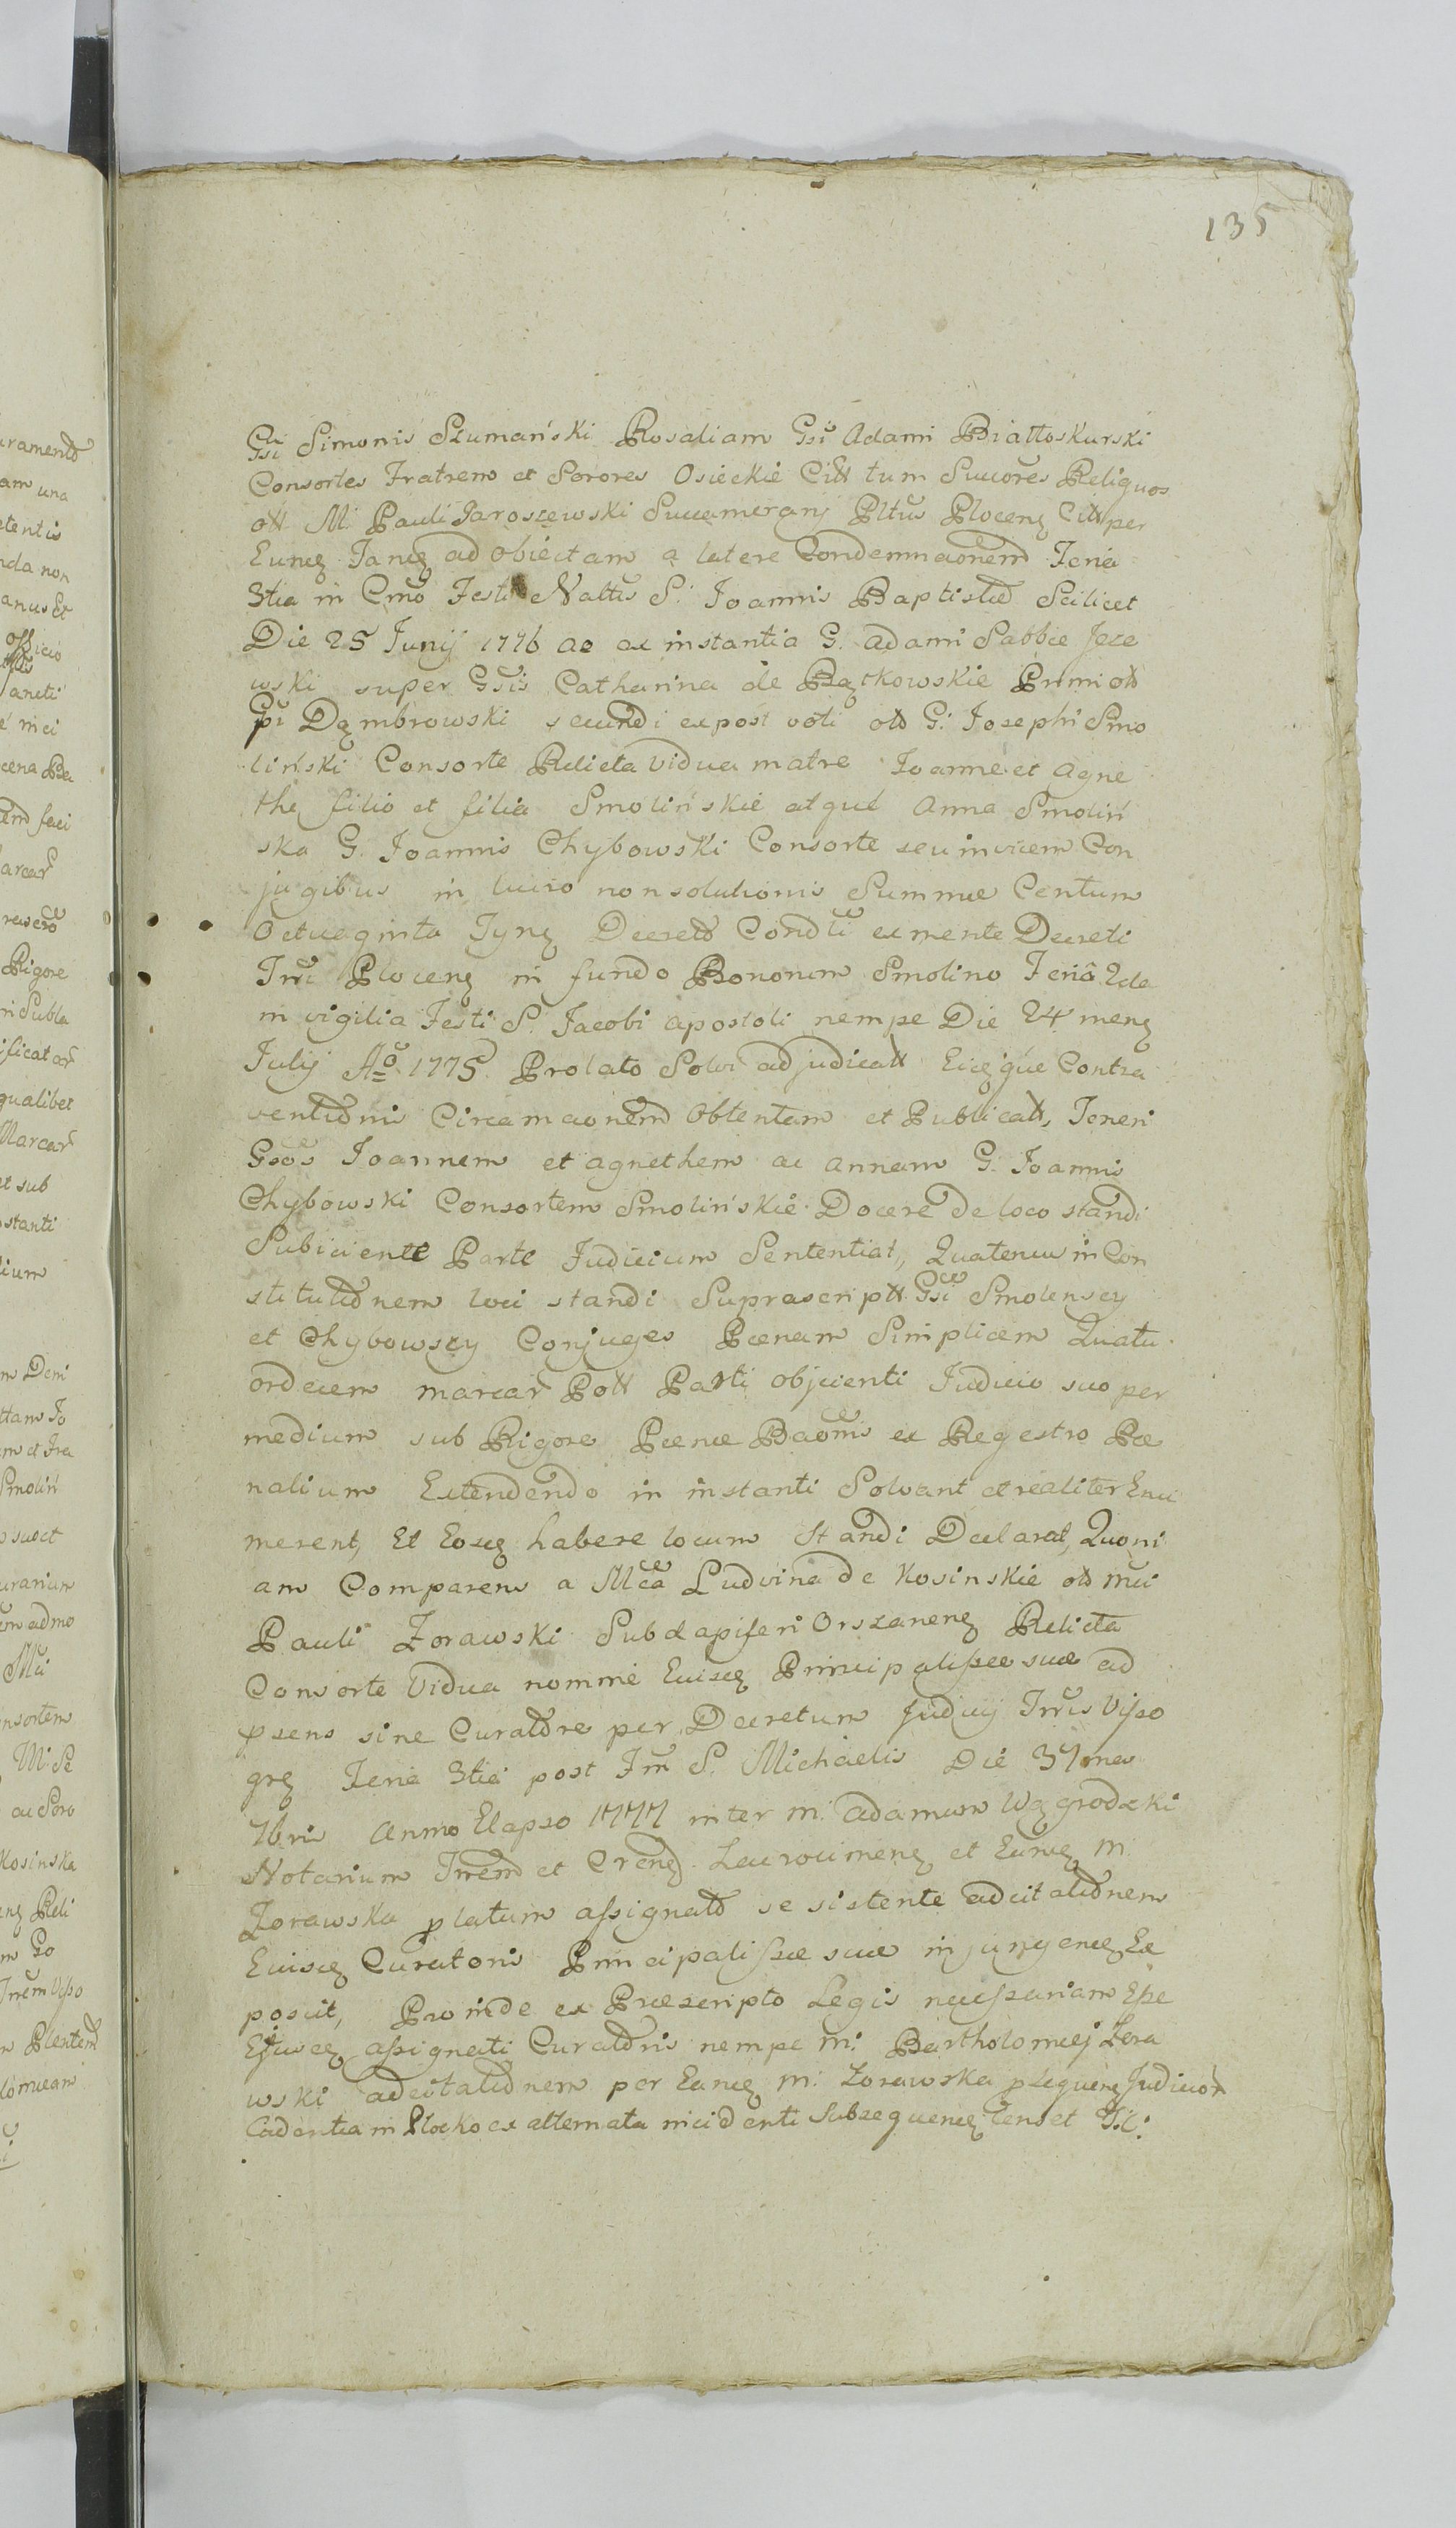 135
Gsi Simonis Szumański Rosaliam Gsi Adami Białłoskurski
Consortes Fratrem et Sorores Osieckie Citt tum Sucores Reliquos
ott M. Pauli Jaroszewski Succamerarij Pltus Plocenę Citt per
Eunę Tanę ad obiectam a latere Condemnaonem Feria
3tia in Cmo Festi Naltis S. Joannis Baptistæ Scilicet
Die 25 Junij 1776 ac ex instantia G. Adami Sabbæ Jeze
wski super Gsis Catharina de Bątkowskie Primi ott
Dąmbrowski secundi expost voti ott G. Josephi Smo
liński Consorte Relicta vidua matre Joanne et Agne
the filio et filia Smolińskie atque Anna Smoliń
ska G. Joannis Chybowski Consorte seu invicem Con
jugibus in lucro non solutionis Summæ Centum
Octuaginta Tynę Decreto ex mente Decreti
Trri Plocenę in fundo Bonorum Smolino Feriâ 2da
in vigilia Festi S. Jacobi Apostoli nempe Die 24 menę
Julij Aō 1775 Prolato Solvi adjudicatt Eieęque Contra
ventionis Circa maonem Obtentam et Publicatt, Teneri
Gsos Joannem et Agnethem ac Annam G. Joannis
Chybowski Consortem Smolińskie Docere de loco standi
Subiiciente Parte Judicium Sententiat, Quatenus in Con
stitutionem loci standi Suprascriptt Gsi Smolenscy
et Chybowscy Conjuges Pœnam Simplicem Quatu
ordecem marcar Pott Parti objicienti Judicio suo per
medium sub Rigore Pœnæ Baonis ex Regestro Pœ
nalium Extendendo in instanti Solvant et realiter Enu
merent, Et Eoscę habere locum Standi Declarat, Quoni
am Comparens a Mca Ludvina de Kosinskie ott Mci
Pauli Zorawski Subdapiferi Orszanenę Relicta
Consorte Vidua nomine Euiscę Principalissæ suæ ad
psens sine Curatore per Decretum Judicij Trris Visso
grę Feria 3tia post Fm S. Michaelis Die
7bris Anno Elapso 1777 inter M. Adamum Wągrodzki
Notarium Trrem et Crenę Zawrocimenę et Eancę M.
Zorawska platum assignato se sistente adcitationem
Euiscę Curatoris Principalissæ suæ injungencę Ex
posuit, Proinde ex Præscripto Legis necessariam Esse
Ejuscę assignati Curatoris nempe M. Bartholomæj Zora
wski adcitationem per Eancę M. Zorawska plequenę Judicior
Cadentia in Plocko ex alternata incidenti Subsequencę Censet